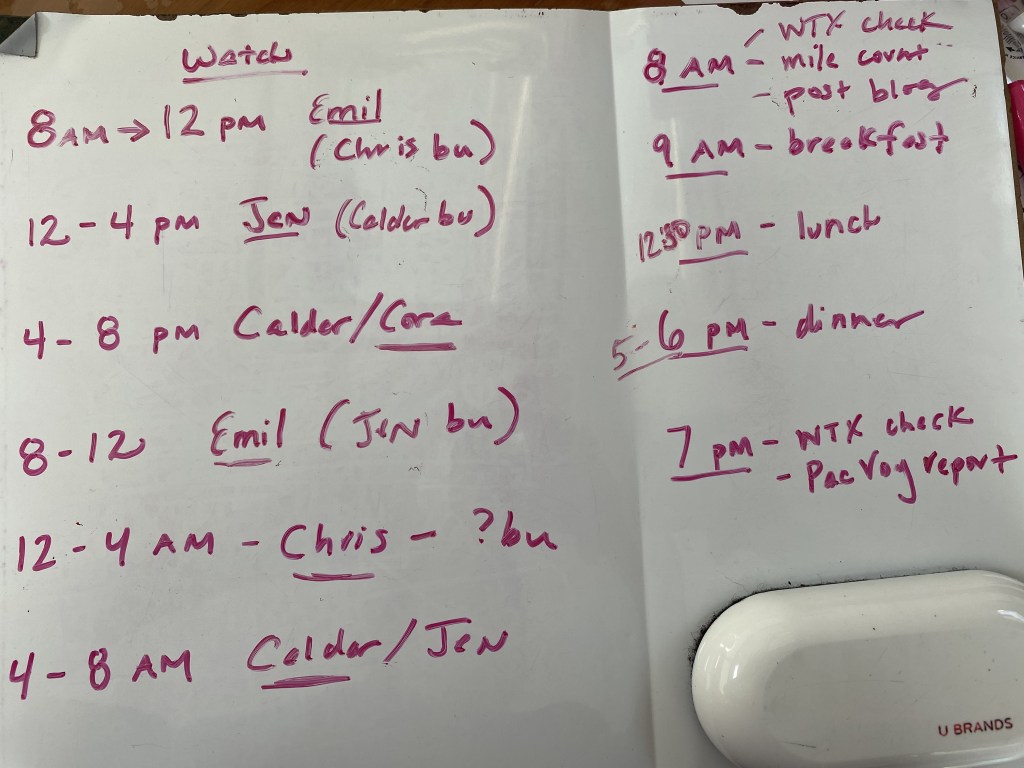 Watch
8 AM → 12 pm Emil
(Chris bu)
12 - 4 pm Jen (Calder bu)
4 - 8 pm Calder/Cora
8 - 12 Emil (Jen bu)
12 - 4 AM - Chris - ? bu
4 - 8 AM Calder/Jen
- WTX check
8 AM - mile count
- post blog
9 AM - breakfast
12:30 pm - lunch
5 - 6 pm - dinner
7 pm - WTX check
- Pac Voy report
U BRANDS